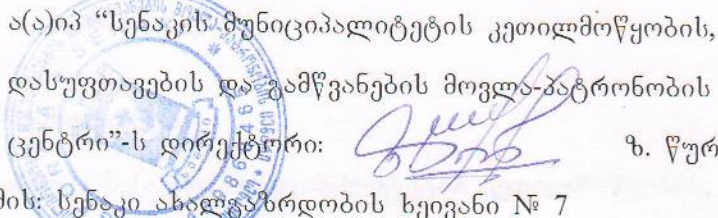 ა(ა)იპ “სენაკის მუნიციპალიტეტის კეთილმოწყობის,
დასუფთავების და გამწვანების მოვლა-პატრონობის
ცენტრი”-ს დირექტორი: ზ. წურ
მის: სენაკი ახალგაზრდობის ხეივანი № 7